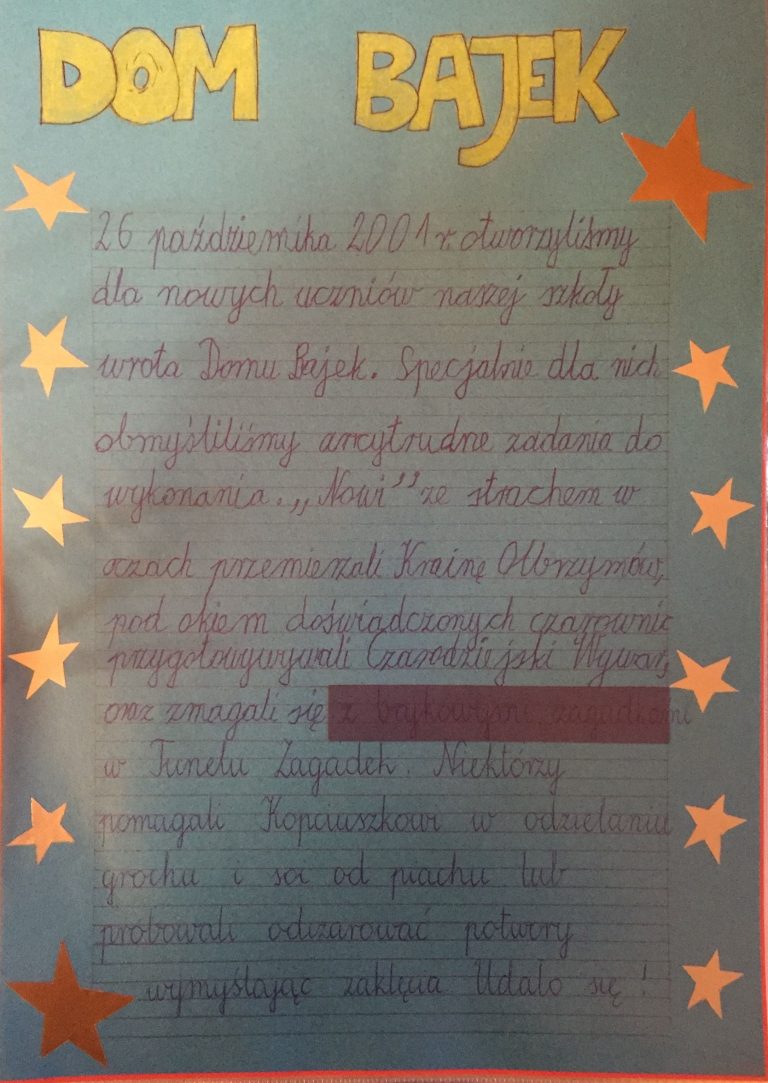 DOM BAJEK
26 października 2001 r. otworzyliśmy
dla nowych uczniów naszej szkoły
wrota Domu Bajek. Specjalnie dla nich
obmyśliliśmy arcytrudne zadania do
wykonania. „Nowi” ze strachem w
oczach przemierzali Krainę Olbrzymów,
pod okiem doświadczonych czarownic
przygotowywywali Czarodziejski Wywar,
oraz zmagali się z bajkowymi zagadkami
w Tunelu Zagadek. Niektórzy
pomagali Kopciuszkowi w odzielaniu
grochu i soi od piachu lub
próbowali odczarować potwory
wymyślając zaklęcia Udało się!